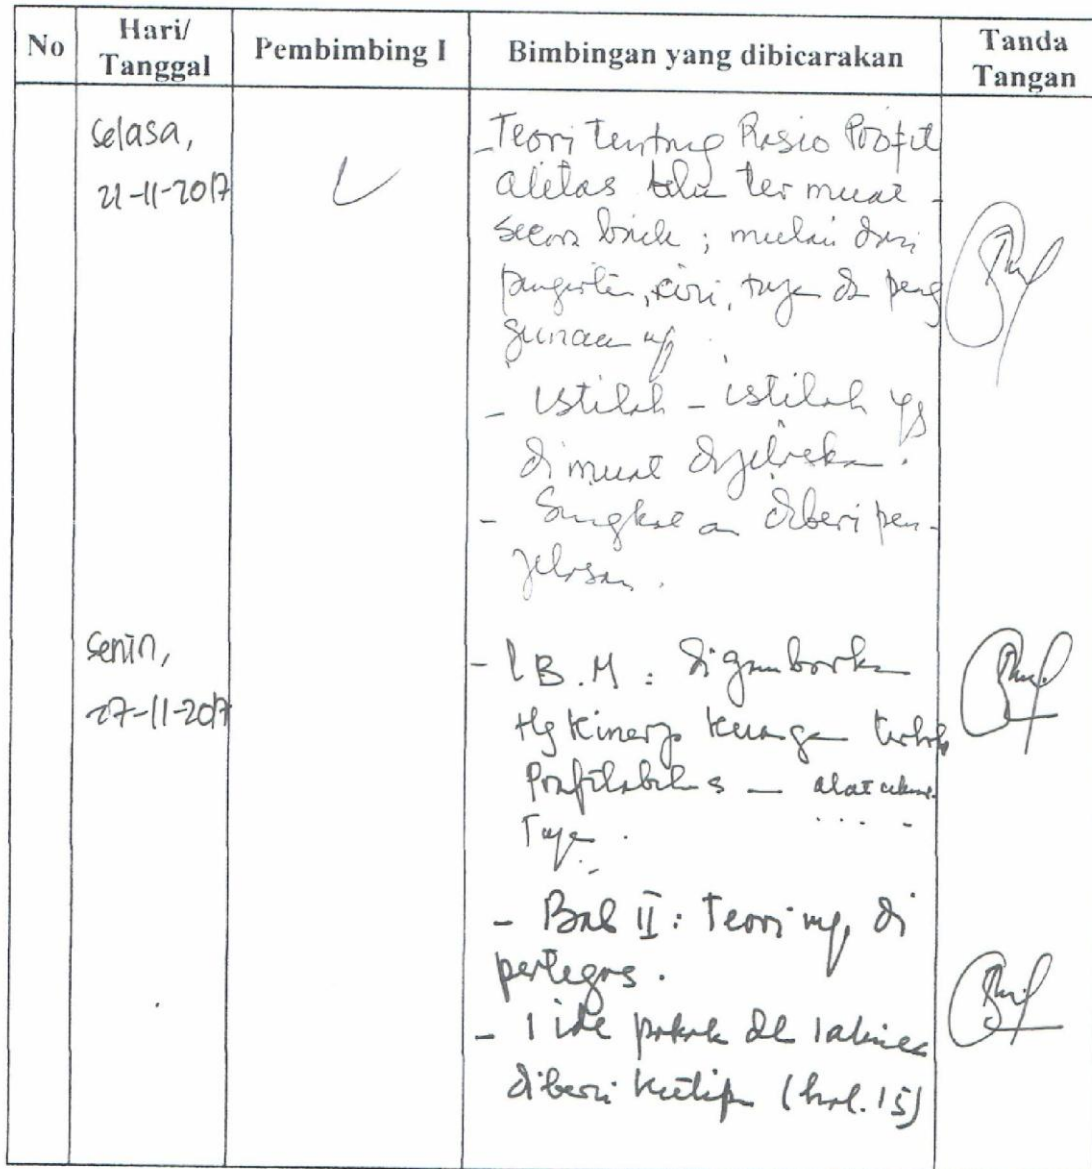 No Hari/ Tanggal Pembimbing I Bimbingan yang dibicarakan Tanda Tangan
Selasa,
21-11-2017
- Teori tentang Rasio Profit
alitas termuat
secara baik ; mulai dari
pengertian, ciri, tujuan dan peng
gunaan
- istilah - istilah yg
dimuat dijelaskan.
- Singkatan diberi pen-
jelasan.
Senin,
27-11-2017
- LB.M : digambarkan
ttg Kinerja Keuangan
Profitabilitas — alat ukur
Tujuan
- Bab II : Teori di
pertegas.
- 1 ide pokok 1 alinea
diberi kutipan (hal. 15)